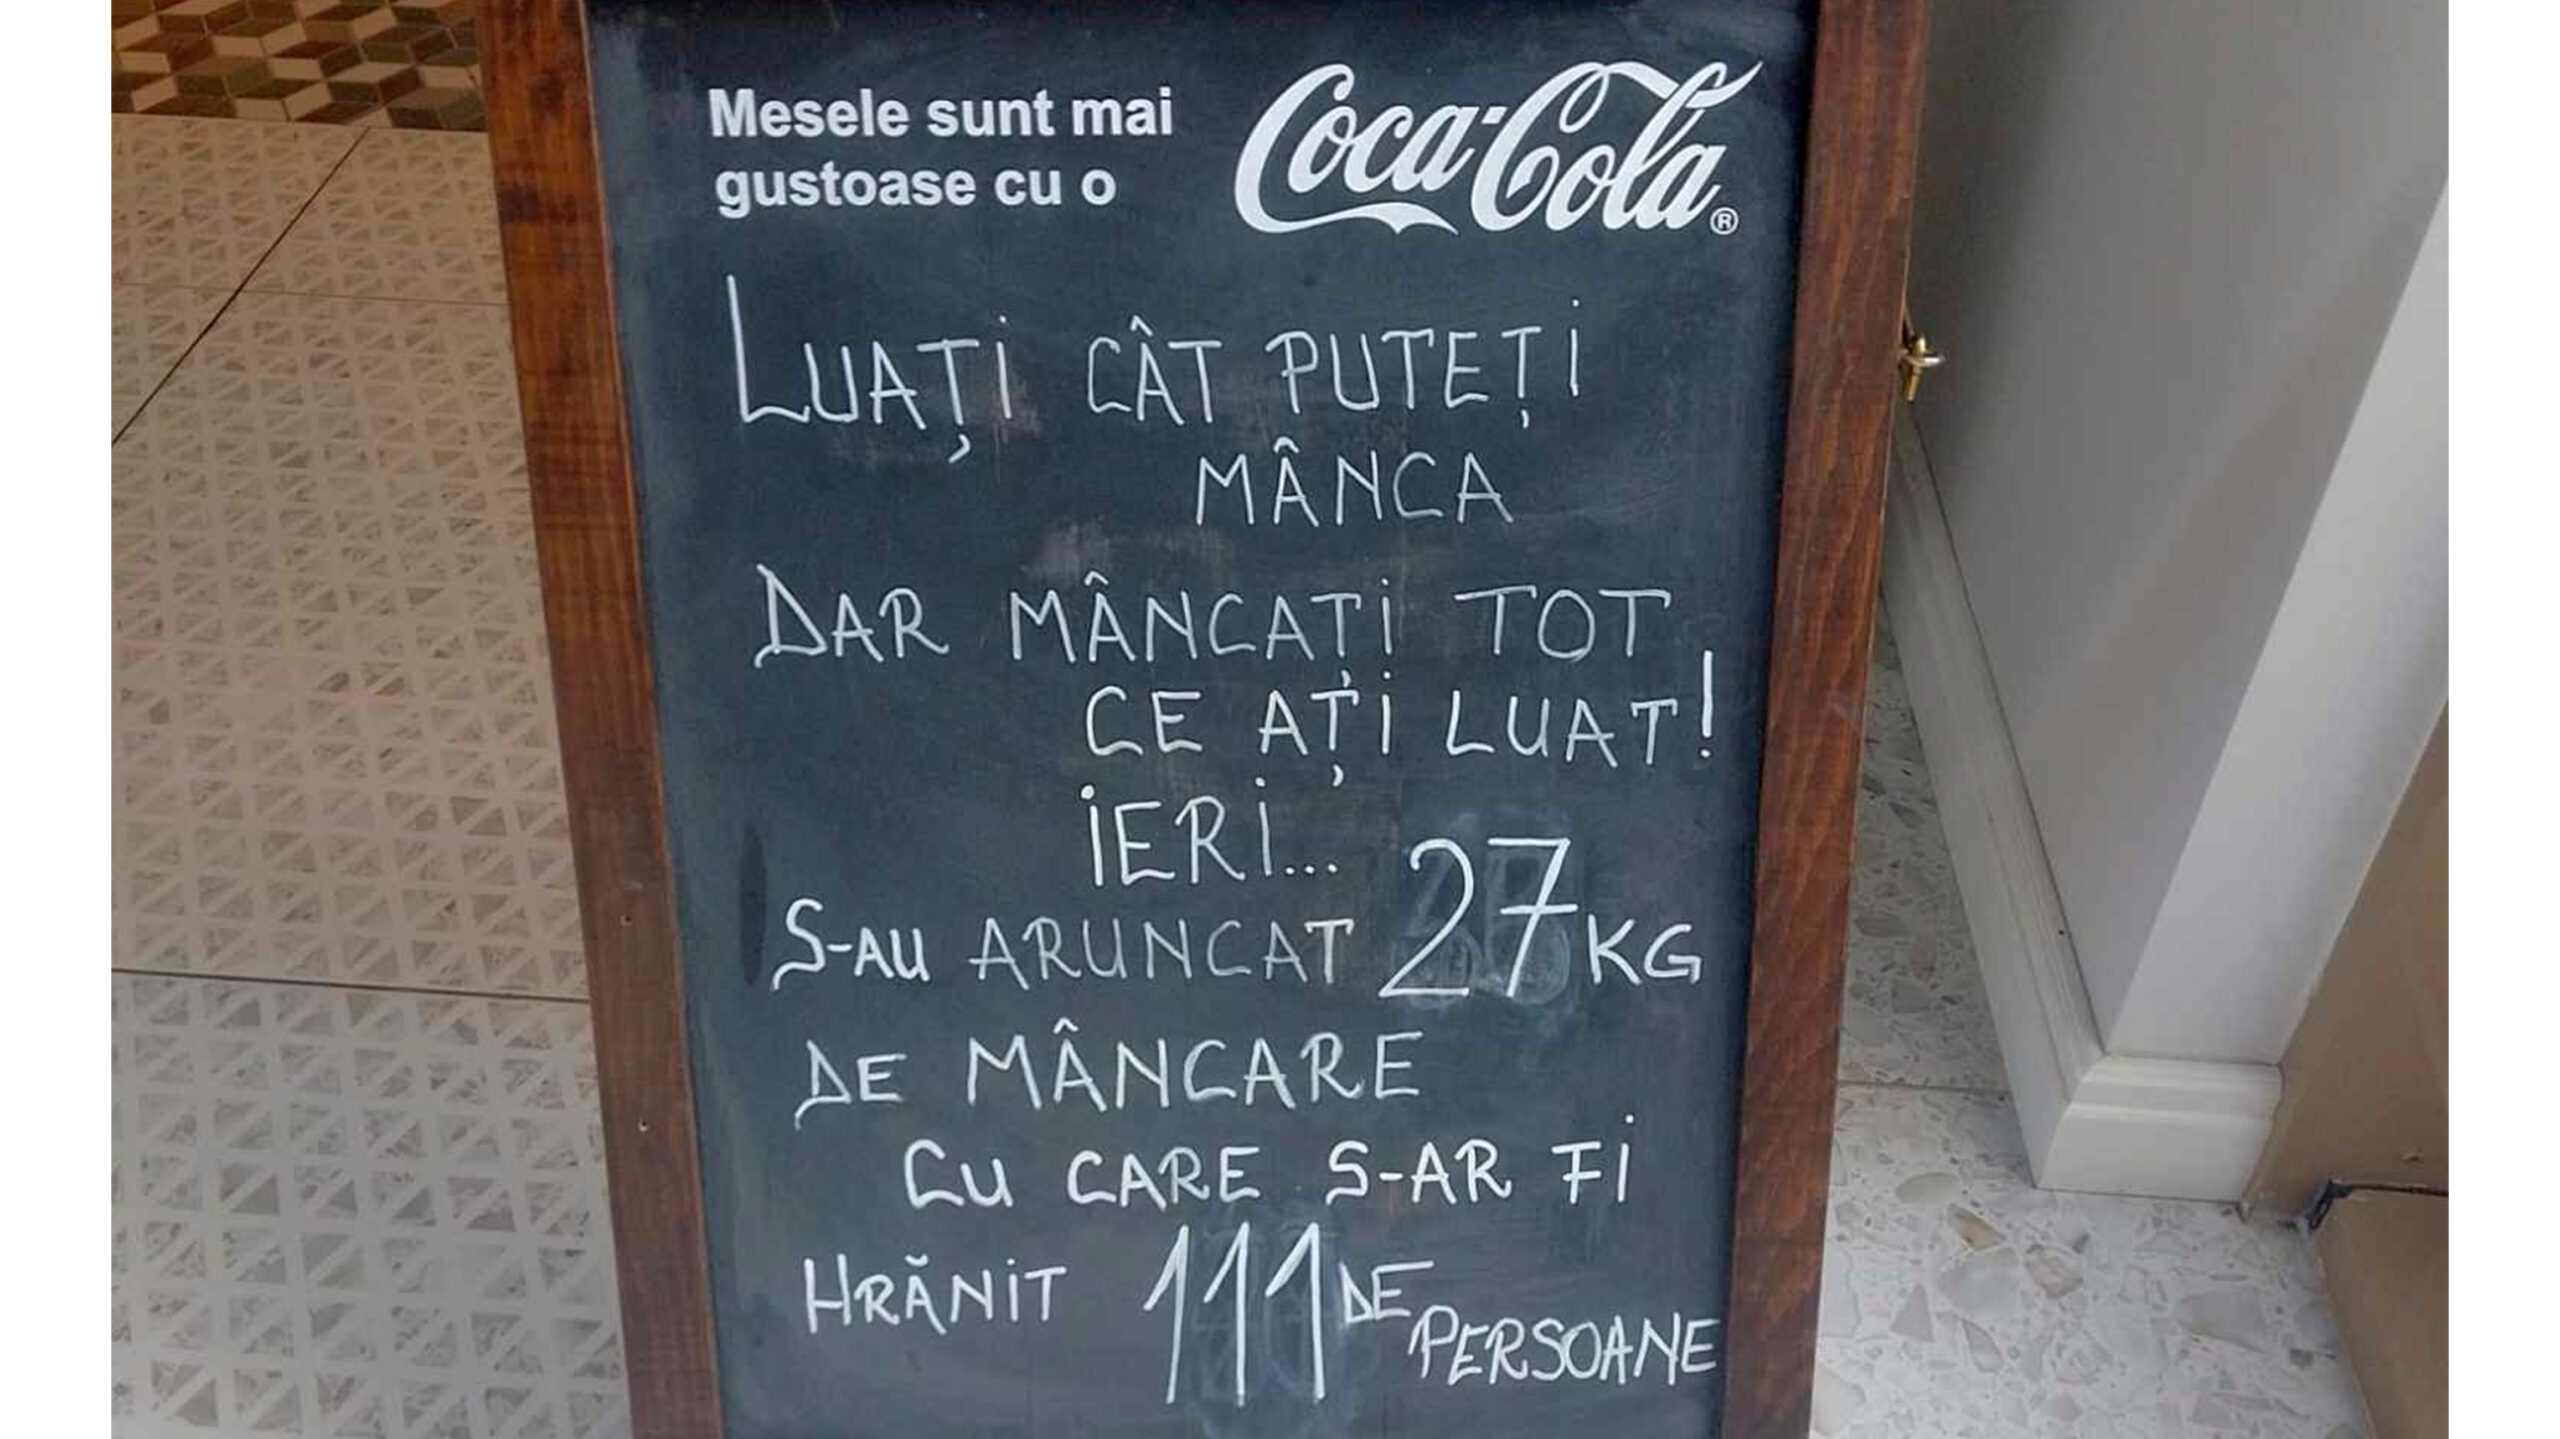 Mesele sunt mai
gustoase cu o
Coca-Cola®
LUAȚI CÂT PUTEȚI
MÂNCA
DAR MÂNCAȚI TOT
CE AȚI LUAT!
IERI...
S-AU ARUNCAT 27 KG
DE MÂNCARE
CU CARE S-AR FI
HRĂNIT 111 DE
PERSOANE